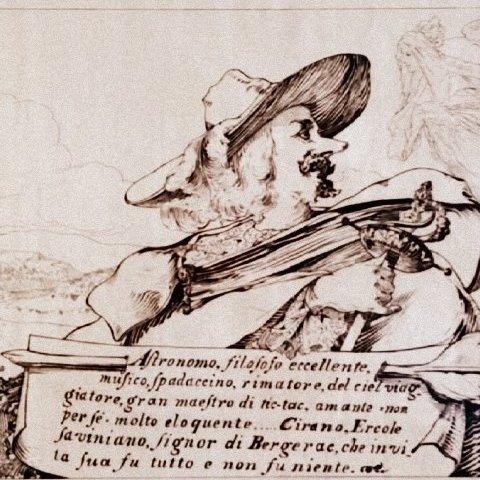 Astronomo, filosofo eccellente,
musico, spadaccino, rimatore, del ciel viag-
giatore, gran maestro di tic-tac, amante - non
per sé - molto eloquente.... Cirano, Ercole
Saviniano, signor di Bergerac, che in vi-
ta sua fu tutto e non fu niente.